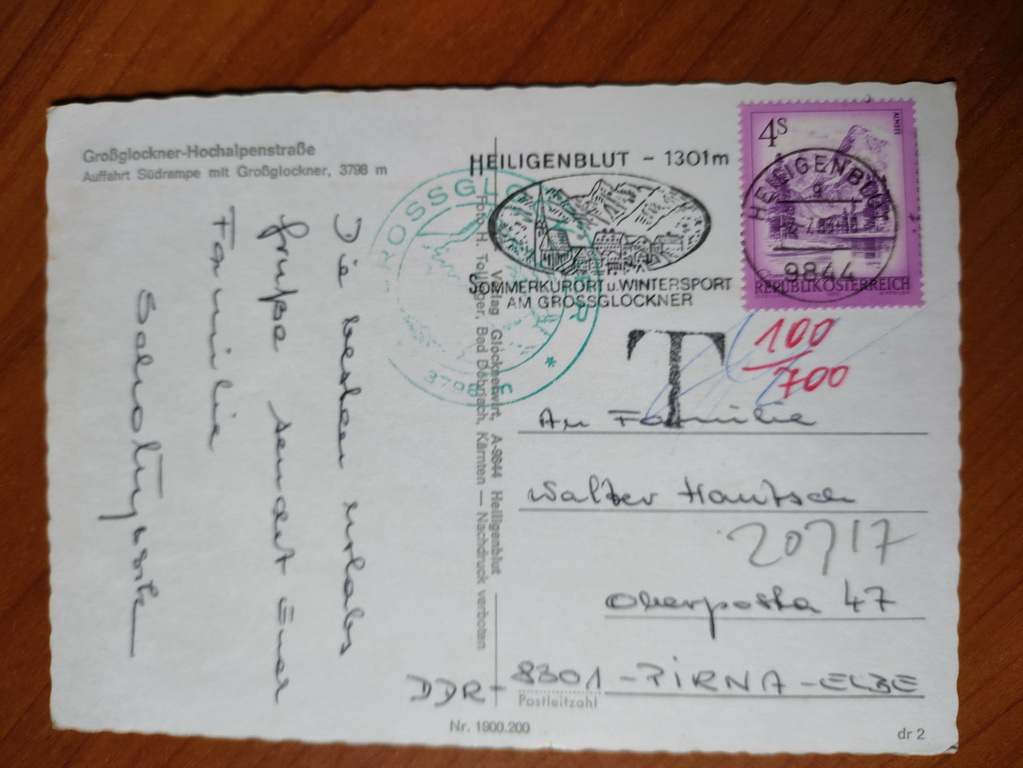 Großglockner-Hochalpenstraße
Auffahrt Südrampe mit Großglockner, 3798 m
Die besten Urlaubs
grüße sendet Euer
Familie
HEILIGENBLUT - 1301m
SOMMERKURORT u. WINTERSPORT
AM GROSSGLOCKNER
GROSSGLOCKNER
3798
*
4S
ALMSEE
REPUBLIK ÖSTERREICH
HEILIGENBLUT
9844
T
100
700
Verlag Glocknerwirt, A-9844 Heiligenblut
Foto H. Tollinger, Bad Döbriach, Kärnten — Nachdruck verboten
An Familie
Walter Hantsch
20717
Oberposta 47
DDR - 8301 - PIRNA - ELBE
Postleitzahl
Nr. 1900.200
dr 2